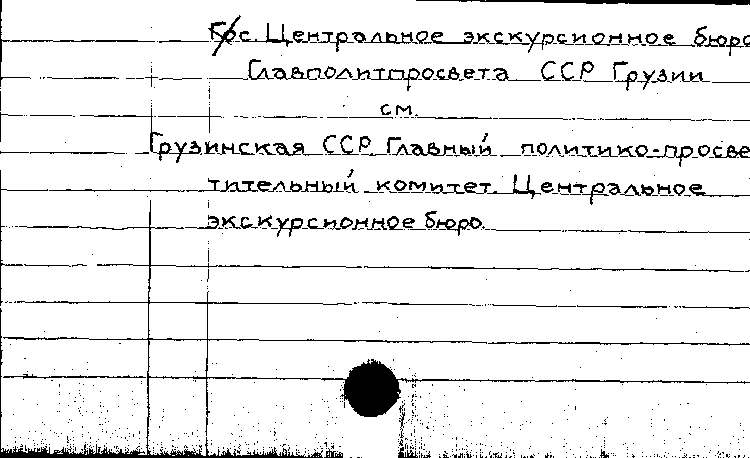 Гос. Центральное экскурсионное бюро
Главполитпросвета ССР Грузии
см.
Грузинская ССР. Главный политико-просве
тительный комитет. Центральное
экскурсионное бюро.